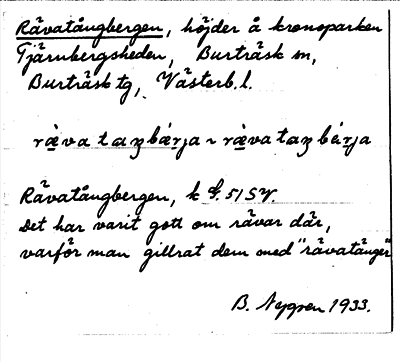 Rävatångbergen, höjder å kronoparken
Tjärnbergsheden, Burträsk sn,
Burträsk tg, Västerb. l.
rävataŋbærja ~ rävataŋbärja
Rävatångbergen, k f. 51 SV.
Det har varit gott om rävar där,
varför man gillrat dem med "rävatånger"
B. Nygren 1933.